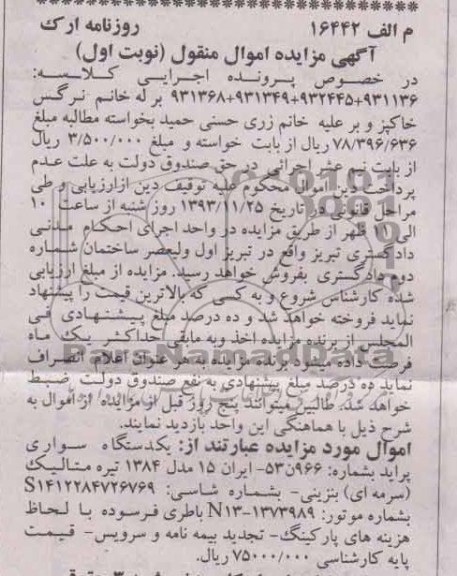 م الف ۱۶۴۴۲ روزنامه ارک
آگهی مزایده اموال منقول (نوبت اول)
در خصوص پرونده اجرایی کلاسه:
۹۳۱۱۳۶+۹۳۲۴۴۵+۹۳۱۳۴۹+۹۳۱۳۶۸ بر له خانم نرگس
خاکپز و بر علیه خانم زری حسنی حمید بخواسته مطالبه مبلغ
۷۸/۳۹۶/۶۳۶ ریال از بابت خواسته و مبلغ ۳/۵۰۰/۰۰۰ ریال
از بابت نیم عشر اجرائی در حق صندوق دولت به علت عدم
پرداخت دین اموال محکوم علیه توقیف دین ازارزیابی و طی
مراحل قانونی در تاریخ ۱۳۹۳/۱۱/۲۵ روز شنبه از ساعت ۱۰
الی ۱۱ ظهر از طریق مزایده در واحد اجرای احکام مدنی
دادگستری تبریز واقع در تبریز اول ولیعصر ساختمان شماره
دوم دادگستری بفروش خواهد رسید. مزایده از مبلغ ارزیابی
شده کارشناس شروع و به کسی که بالاترین قیمت را پیشنهاد
نماید فروخته خواهد شد و ده درصد مبلغ پیشنهادی فی
المجلس از برنده مزایده اخذ وبه مابقی حداکثر یک ماه
فرصت داده میشود برنده مزایده به هر عنوان اعلام انصراف
نماید ده درصد مبلغ پیشنهادی به نفع صندوق دولت ضبط
خواهد شد. طالبین میتوانند پنج روز قبل از مزایده از اموال به
شرح ذیل با هماهنگی این واحد بازدید نمایند.
اموال مورد مزایده عبارتند از: یکدستگاه سواری
پراید بشماره: ۹۶۶ن۵۳- ایران ۱۵ مدل ۱۳۸۴ تیره متالیک
(سرمه ای) بنزینی- بشماره شاسی: S۱۴۱۲۲۸۴۷۲۶۷۶۹
بشماره موتور: N۱۳-۱۳۷۳۹۸۹ باطری فرسوده با لحاظ
هزینه های پارکینگ- تجدید بیمه نامه و سرویس- قیمت
پایه کارشناسی ۷۵۰۰۰/۰۰۰ ریال.
ParsNamadData